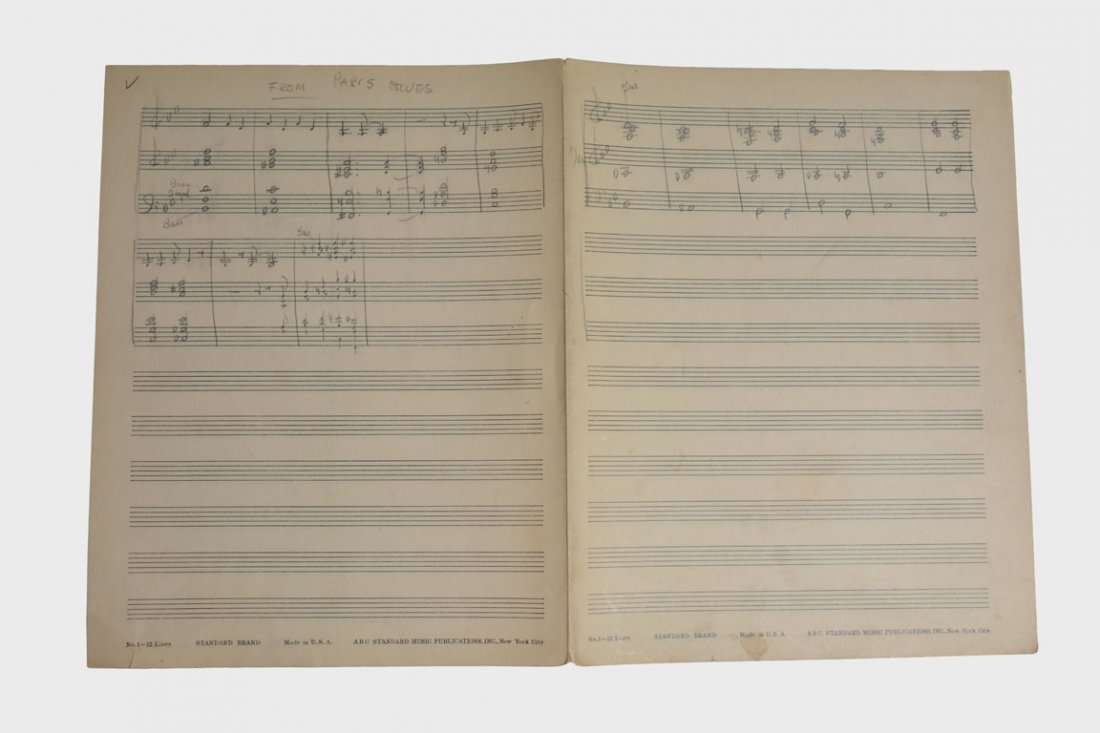 FROM PARIS BLUES
Bass
No. 1—12 Lines STANDARD BRAND Made in U.S.A. ABC STANDARD MUSIC PUBLICATIONS, INC., New York City
No. 1—12 Lines STANDARD BRAND Made in U.S.A. ABC STANDARD MUSIC PUBLICATIONS, INC., New York City